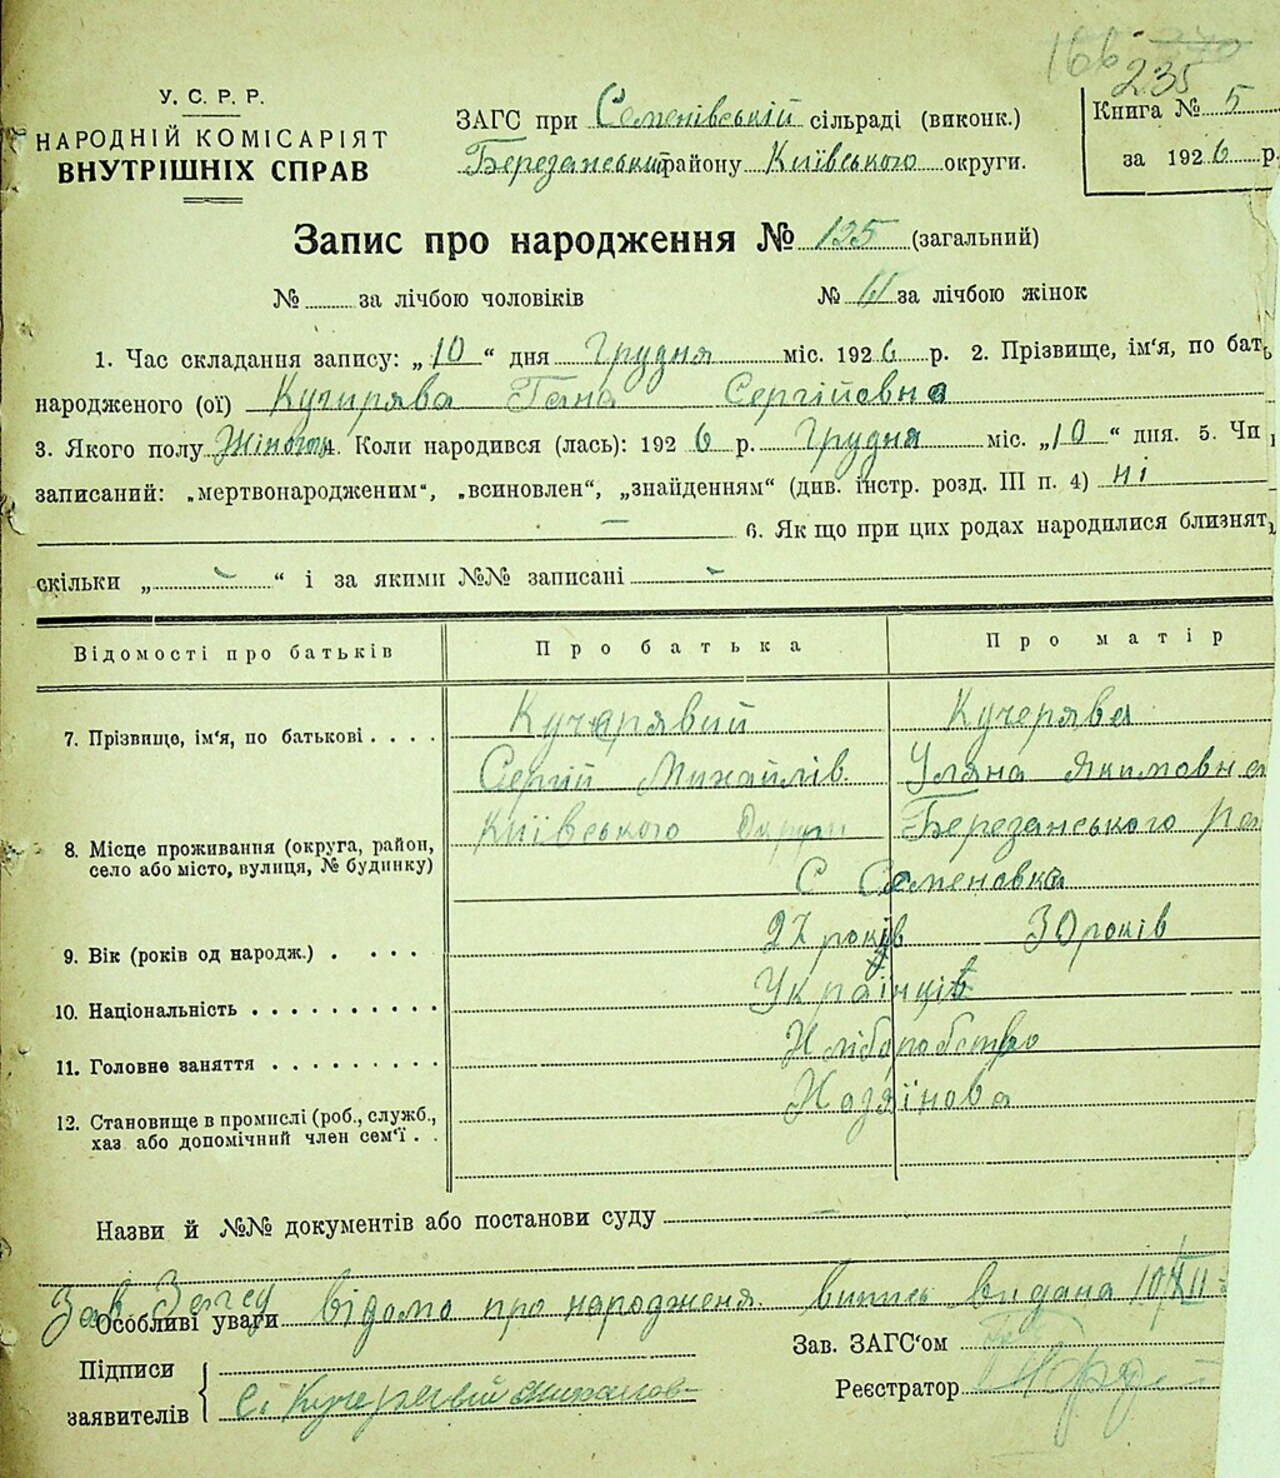 166 270
235
У. С. Р. Р.
НАРОДНІЙ КОМІСАРІЯТ
ВНУТРІШНІХ СПРАВ
ЗАГС при Семенівській сільраді (виконк.)
Березанський району Київського округи.
Книга № 5
за 1926 р.
Запис про народження № 125 (загальний)
№ за лічбою чоловіків № 61 за лічбою жінок
1. Час складання запису: „10“ дня Грудня міс. 1926 р. 2. Прізвище, ім‘я, по бать
народженого (ої) Кучирява Гана Сергійовна
3. Якого полу Жіноти 4. Коли народився (лась): 1926 р. Грудня міс. „10“ дня. 5. Чи
записаний: „мертвонародженим“, „всиновлен“, „знайденням“ (див. інстр. розд. III п. 4) ні
— 6. Як що при цих родах народилися близнят,
скільки „ - “ і за якими №№ записані -
Відомості про батьків Про батька Про матір
7. Прізвище, ім‘я, по батькові . . . . Кучарявий Кучерява
Сергій Михайлів Уляна Якимовна
8. Місце проживання (округа, район,
село або місто, вулиця, № будинку) Київського Округи Березанського Рай
С Семеновка
9. Вік (років од народж.) . . . . 27 років 30 років
10. Національність . . . . . . . . . . Українців
11. Головне заняття . . . . . . . . . Хліборобство
12. Становище в промислі (роб., служб.,
хаз або допомічний член сем‘ї . . Хазяїнова
Назви й №№ документів або постанови суду —
Зав. Загсу
Особливі уваги відомо про народженя. витись видана 10/XII
Підписи
заявителів С. Кучерявий
Зав. ЗАГС‘ом
Реєстратор